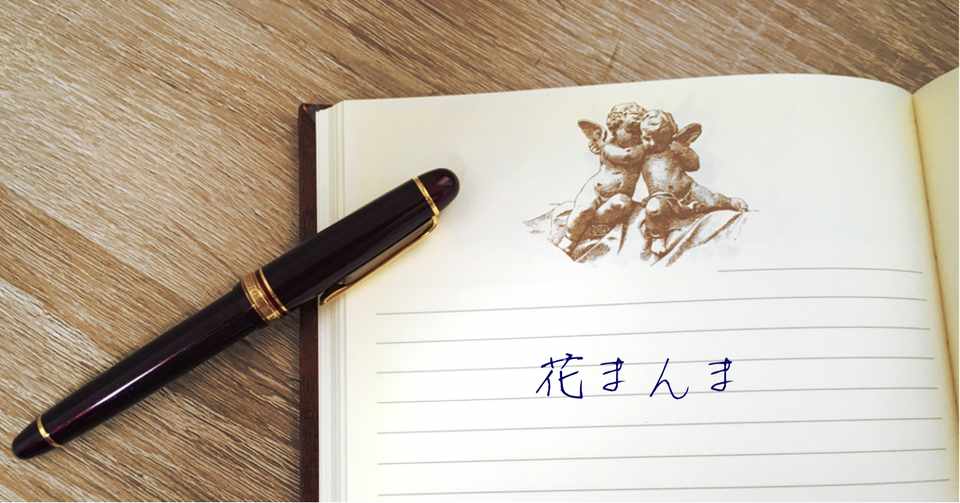 花まんま